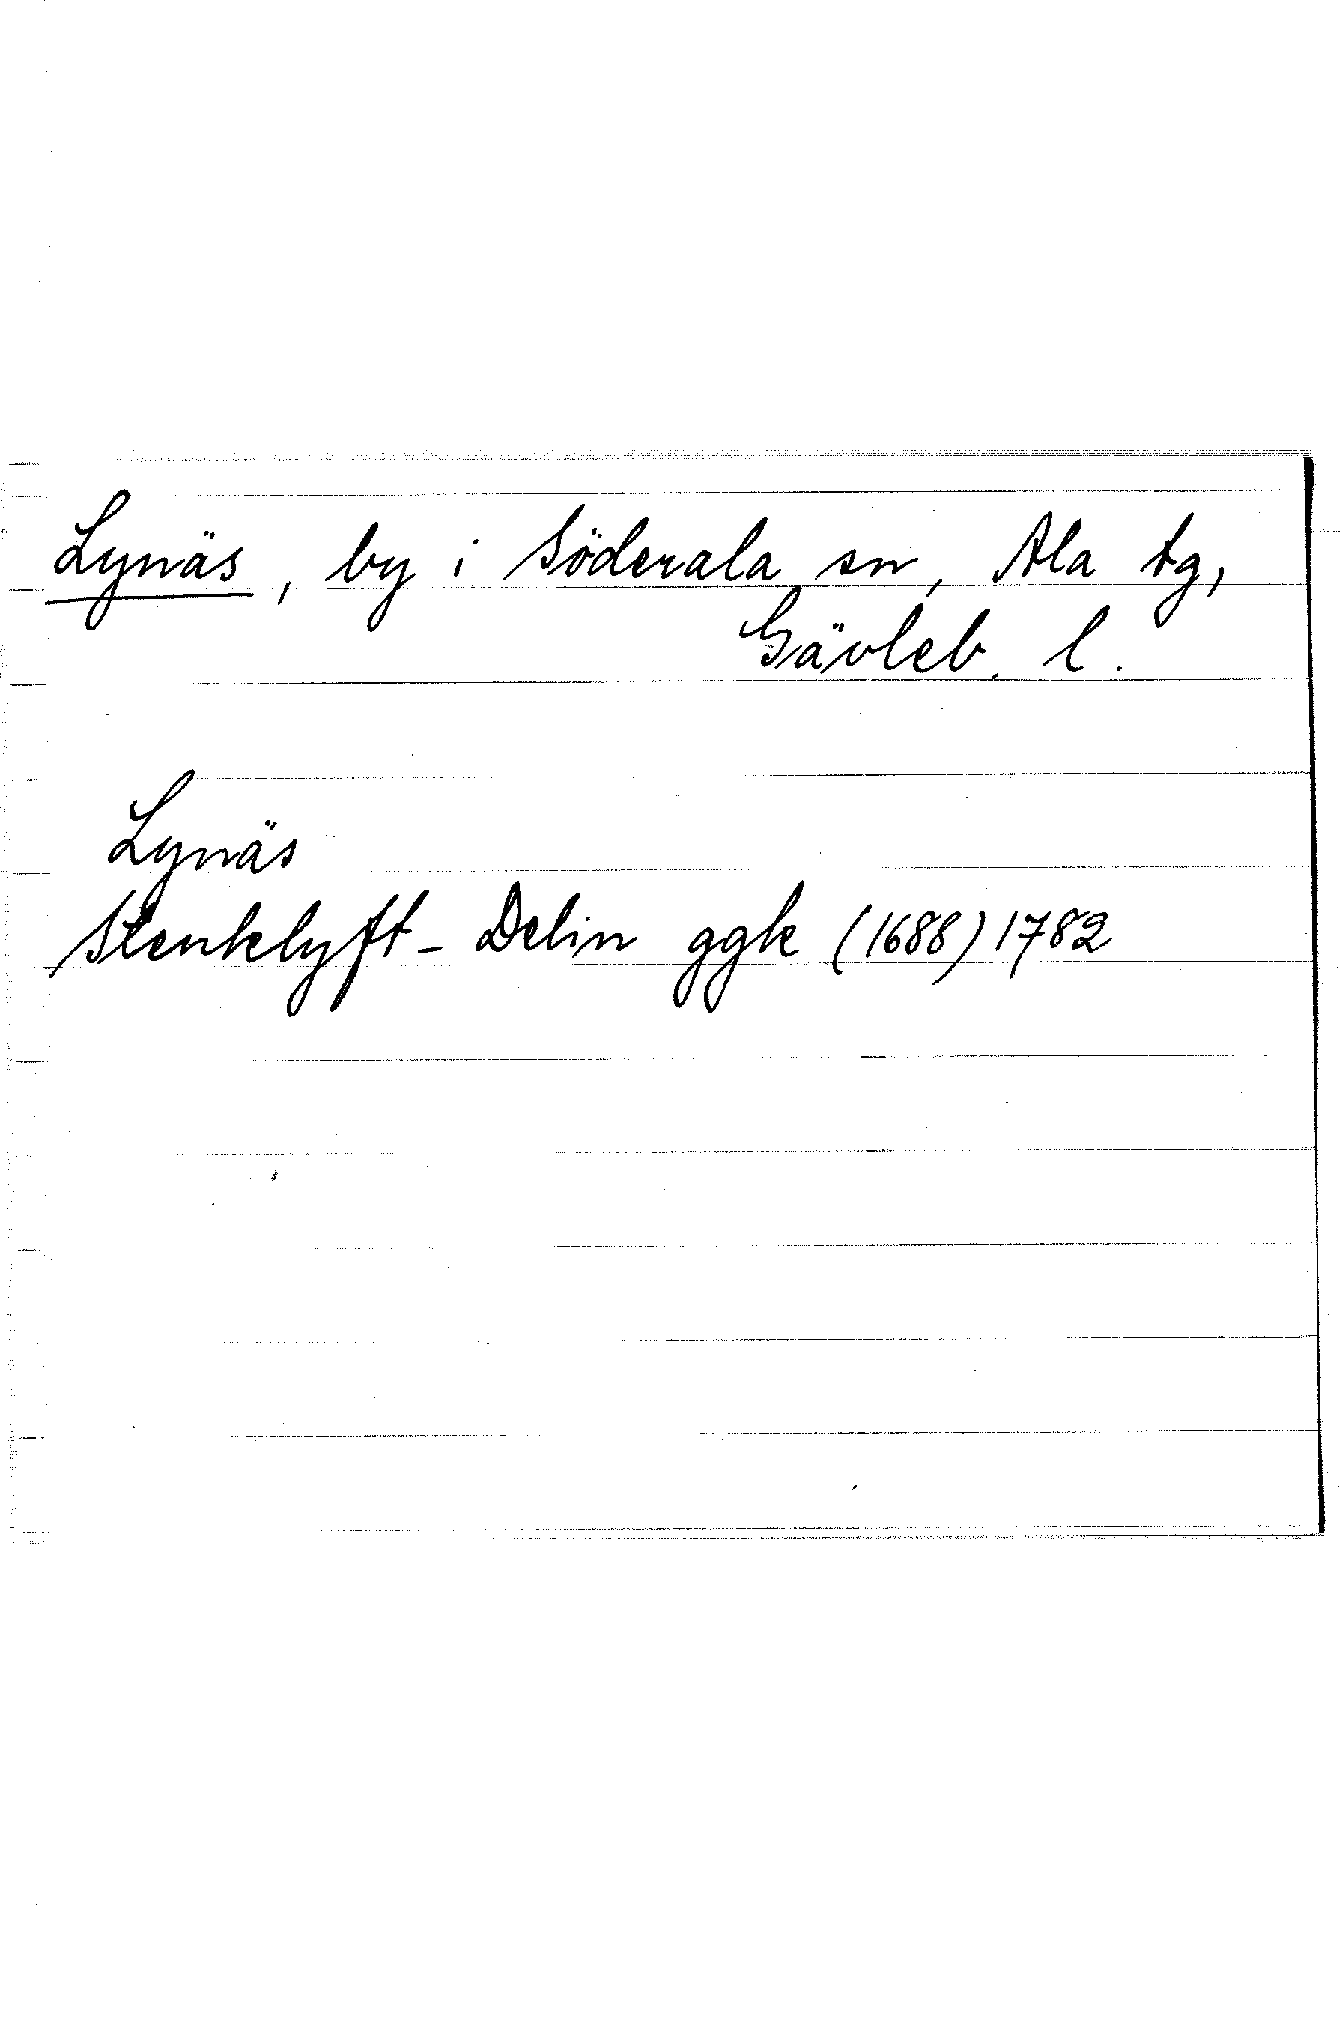 Lynäs, by i Söderala sn, Ala tg,
Gävleb. l.
Lynäs
Stenklyft - Delin ggk (1688) 1782